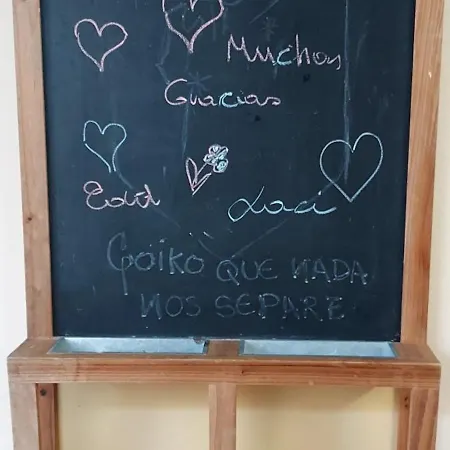 Muchas
Gracias
Edid Loci
Goiko QUE NADA
NOS SEPARE